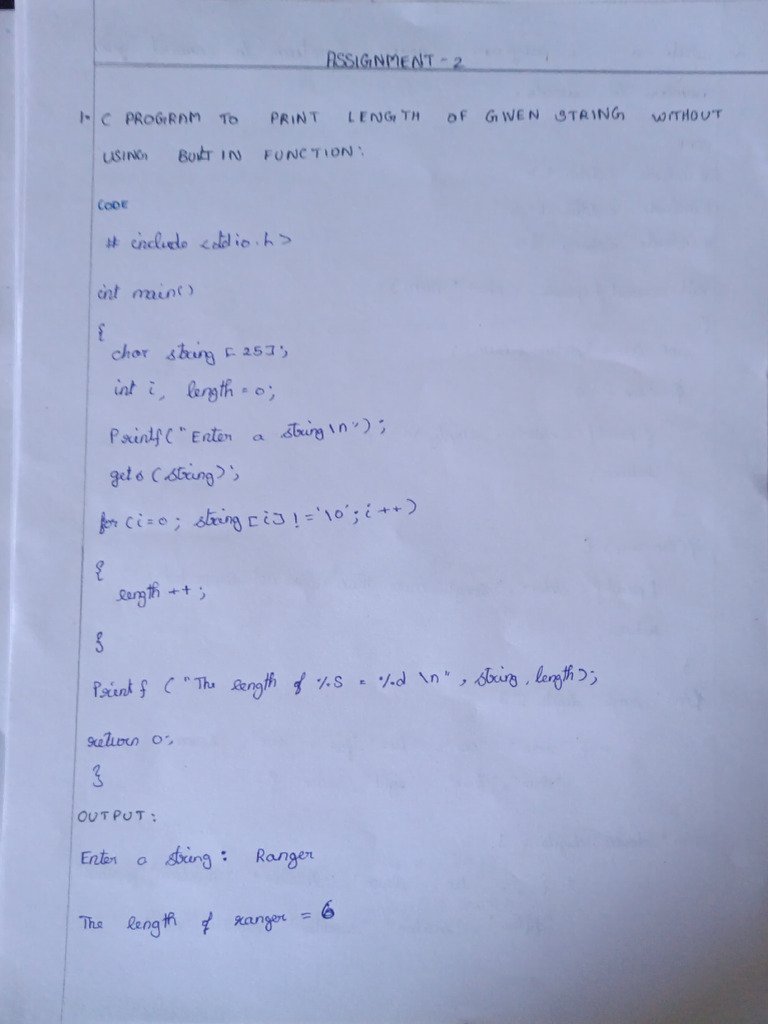 ASSIGNMENT - 2
1. C PROGRAM TO PRINT LENGTH OF GIVEN STRING WITHOUT
USING BUILT IN FUNCTION:
CODE
# include <stdio.h>
int main()
{
char string [25];
int i, length = 0;
Printf("Enter a string \n");
gets (string);
for (i=0; string [i] != '\0'; i++)
{
length ++;
}
Printf ("The length of %s = %d \n", string, length);
return 0;
}
OUTPUT:
Enter a string: Ranger
The length of ranger = 6